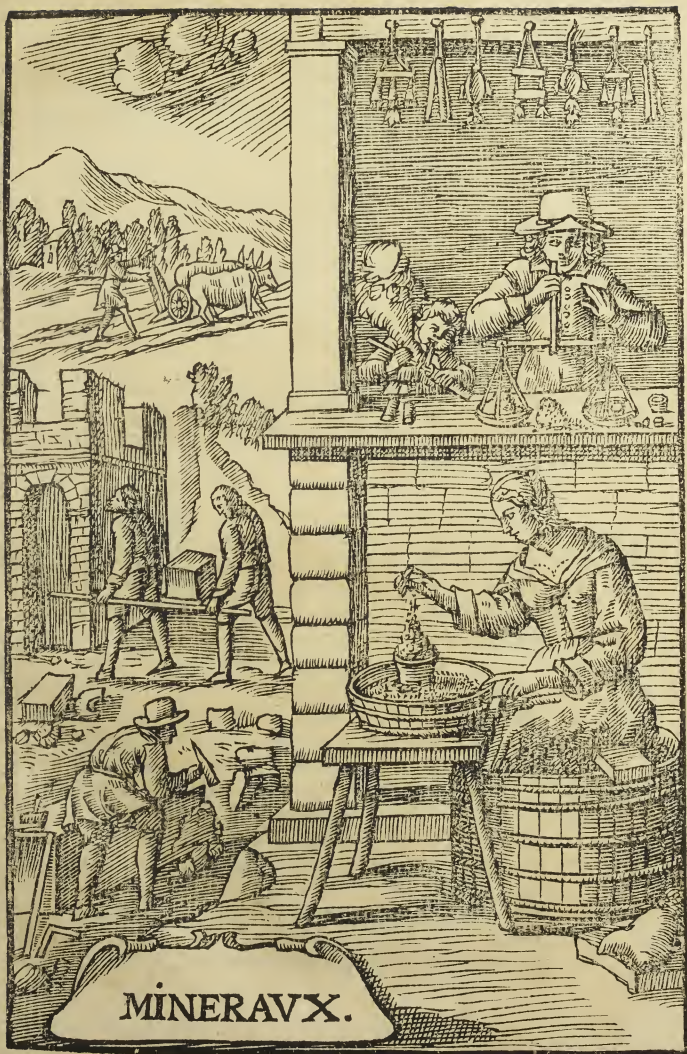 MİNERAVX.